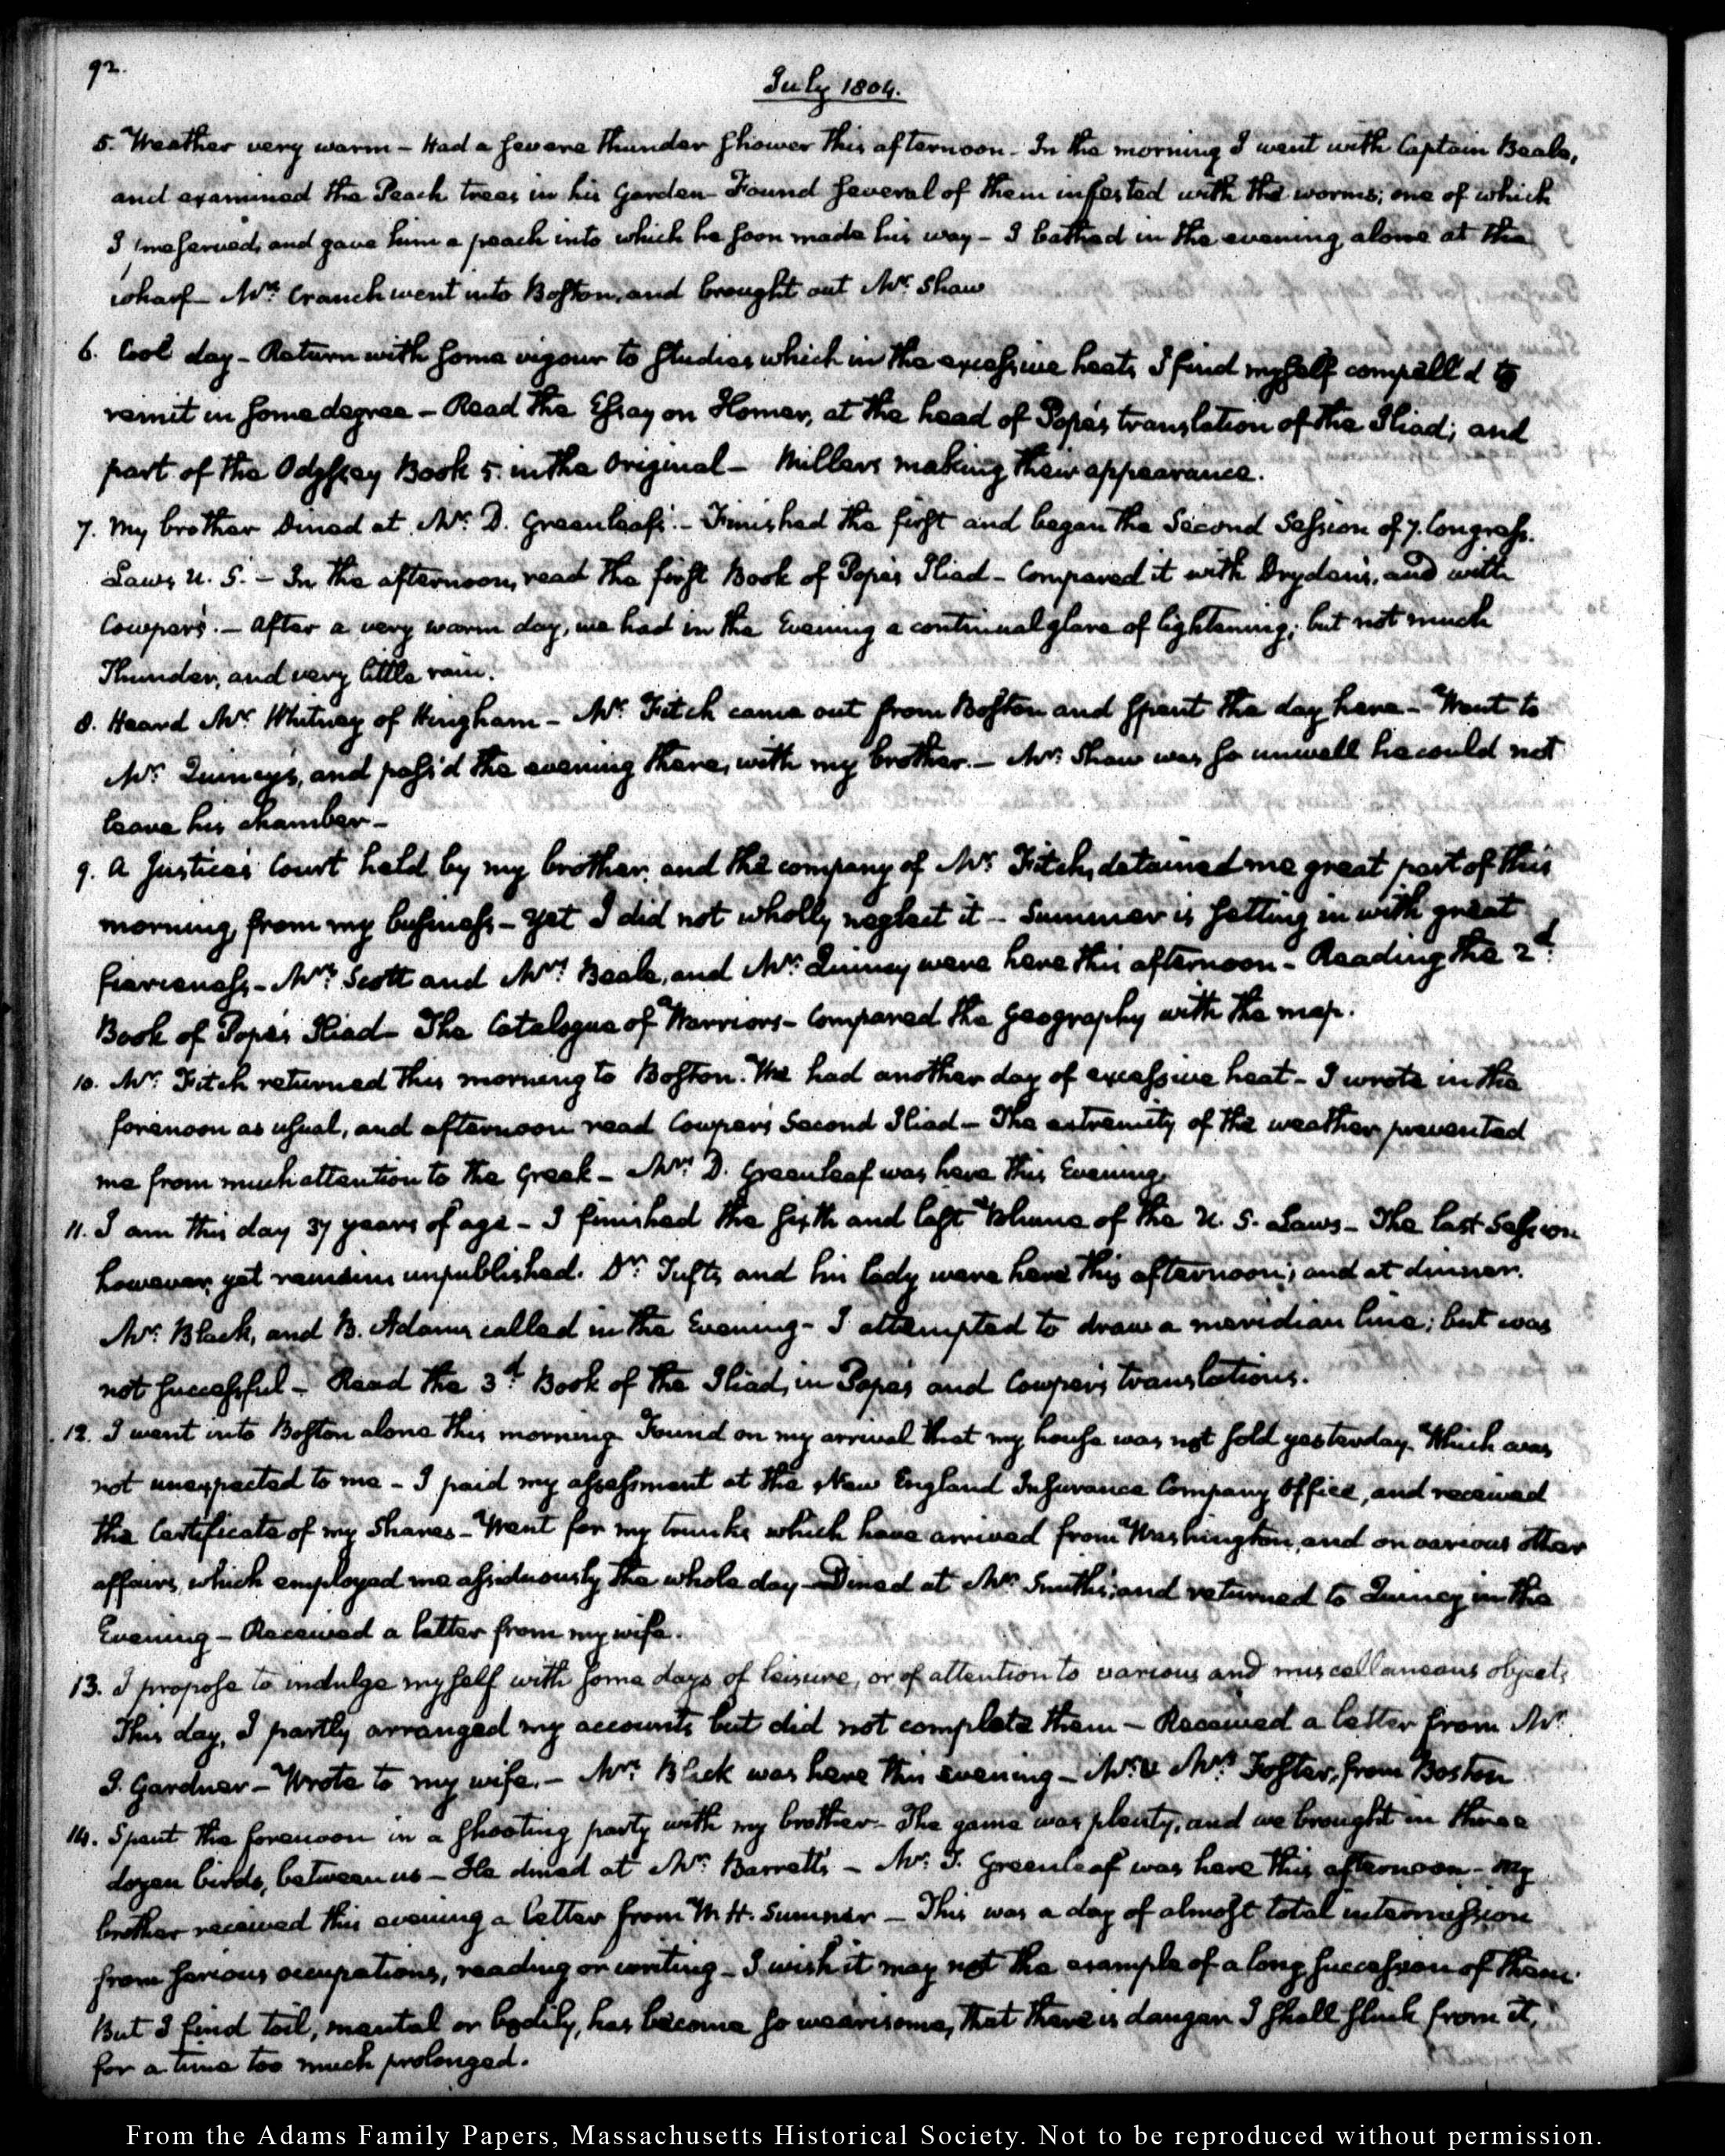 92.
July 1804.
5. Weather very warm – Had a severe thunder shower this afternoon – In the morning I went with Captain Beale,
and examined the Peach trees in his Garden – Found several of them infested with the worms; one of which
I preserved, and gave him a peach into which he soon made his way – I bathed in the evening, alone at the
wharf – Mr. Cranch went into Boston, and brought out Mr. Shaw
6. Cool day – Return with some vigour to studies which in the excessive heats I find myself compell'd to
remit in some degree – Read the Essay on Homer, at the head of Pope's translation of the Iliad; and
part of the Odyssey Book 5. in the Original – Millers making their appearance.
7. My brother Dined at Mr. D. Greenleaf's. – Finished the first and began the Second Session of 7. Congress.
Laws U. S. – In the afternoon, read the first Book of Pope's Iliad – Compared it with Dryden's, and with
Cowper's. – After a very warm day, we had in the Evening a continual glare of lightening; but not much
Thunder, and very little rain.
8. Heard Mr. Whitney of Hingham – Mr. Fitch came out from Boston and spent the day here – Went to
Mr. Quincy's, and pass'd the evening there, with my brother. – Mr. Shaw was so unwell he could not
leave his chamber –
9. A Justice's Court held by my brother, and the company of Mr. Fitch, detained me great part of this
morning, from my business – Yet I did not wholly neglect it – Summer is setting in with great
fierceness – Mrs. Scott and Mrs. Beale, and Mr. Quincy were here this afternoon – Reading the 2d.
Book of Pope's Iliad – The Catalogue of Warriors – Compared the geography with the map.
10. Mr. Fitch returned this morning to Boston. We had another day of excessive heat – I wrote in the
forenoon as usual, and afternoon read Cowper's Second Iliad – The extremity of the weather prevented
me from much attention to the Greek – Mrs. D. Greenleaf was here this Evening.
11. I am this day 37 years of age – I finished the sixth and last Volume of the U. S. Laws – The last Session
however, yet remains unpublished. Dr. Tufts and his lady were here this afternoon; and at dinner.
Mr. Black, and B. Adams called in the Evening – I attempted to draw a meridian line; but was
not successful – Read the 3d. Book of the Iliad, in Pope's and Cowper's translations.
12. I went into Boston alone this morning. Found on my arrival that my house was not sold yesterday. Which was
not unexpected to me – I paid my assessment at the New England Insurance Company Office, and received
the Certificate of my Shares – Went for my trunks which have arrived from Washington, and on various other
affairs, which employed me assiduously the whole day – Dined at Mr. Smith's; and returned to Quincy in the
Evening – Received a letter from my wife.
13. I propose to indulge myself with some days of leisure, or of attention to various and miscellaneous objects
This day, I partly arranged my accounts but did not complete them – Received a letter from Mr.
J. Gardner – Wrote to my wife. – Mrs. Black was here this evening – Mr. & Mrs. Foster, from Boston
14. Spent the forenoon in a shooting party with my brother – The game was plenty, and we brought in three
dozen birds, between us – He dined at Mr. Barrett's – Mr. T. Greenleaf was here this afternoon – My
brother received this evening a letter from W. H. Sumner – This was a day of almost total intermission
from serious occupations, reading or writing – I wish it may not the example of a long succession of them.
But I find toil, mental or bodily, has become so wearisome, that there is danger I shall shrink from it,
for a time too much prolonged.
From the Adams Family Papers, Massachusetts Historical Society. Not to be reproduced without permission.